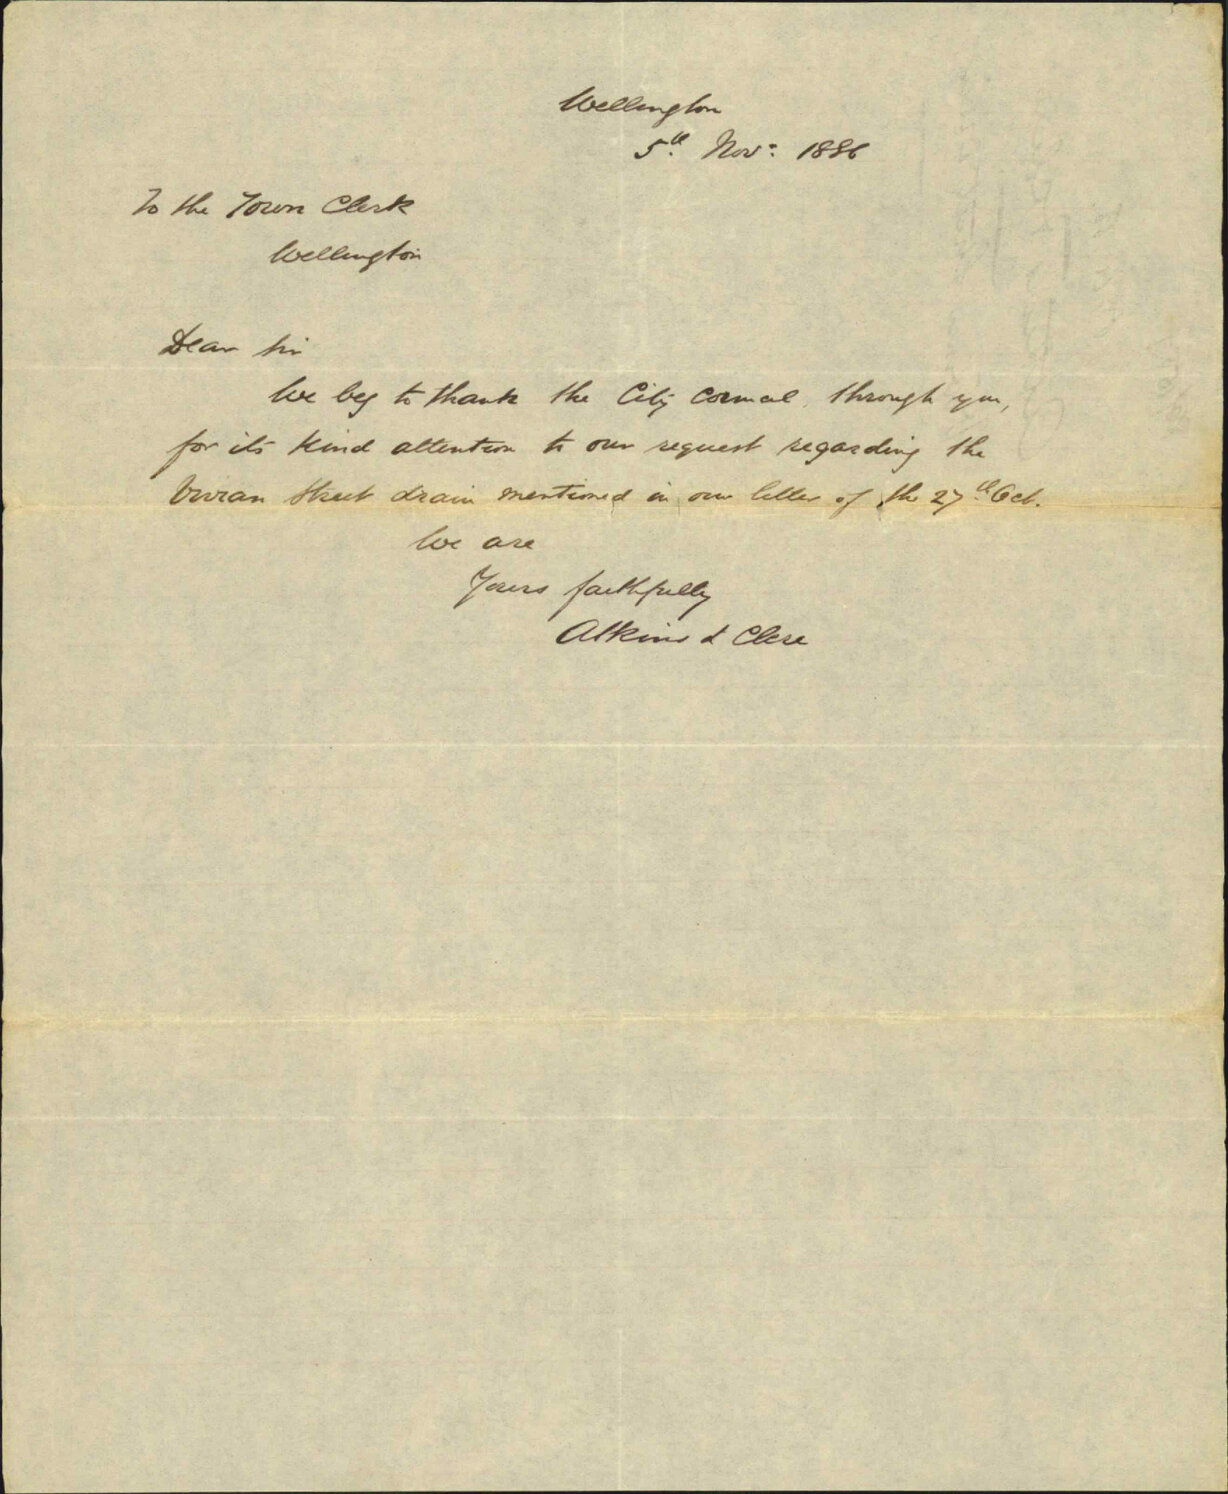 Wellington
5th. Nov: 1886
To the Town Clerk
Wellington
Dear Sir
We beg to thank the City Council, through you,
for its kind attention to our request regarding the
Vivian Street drain mentioned in our letter of the 27th. Oct.
We are
Yours faithfully
Atkins & Clere